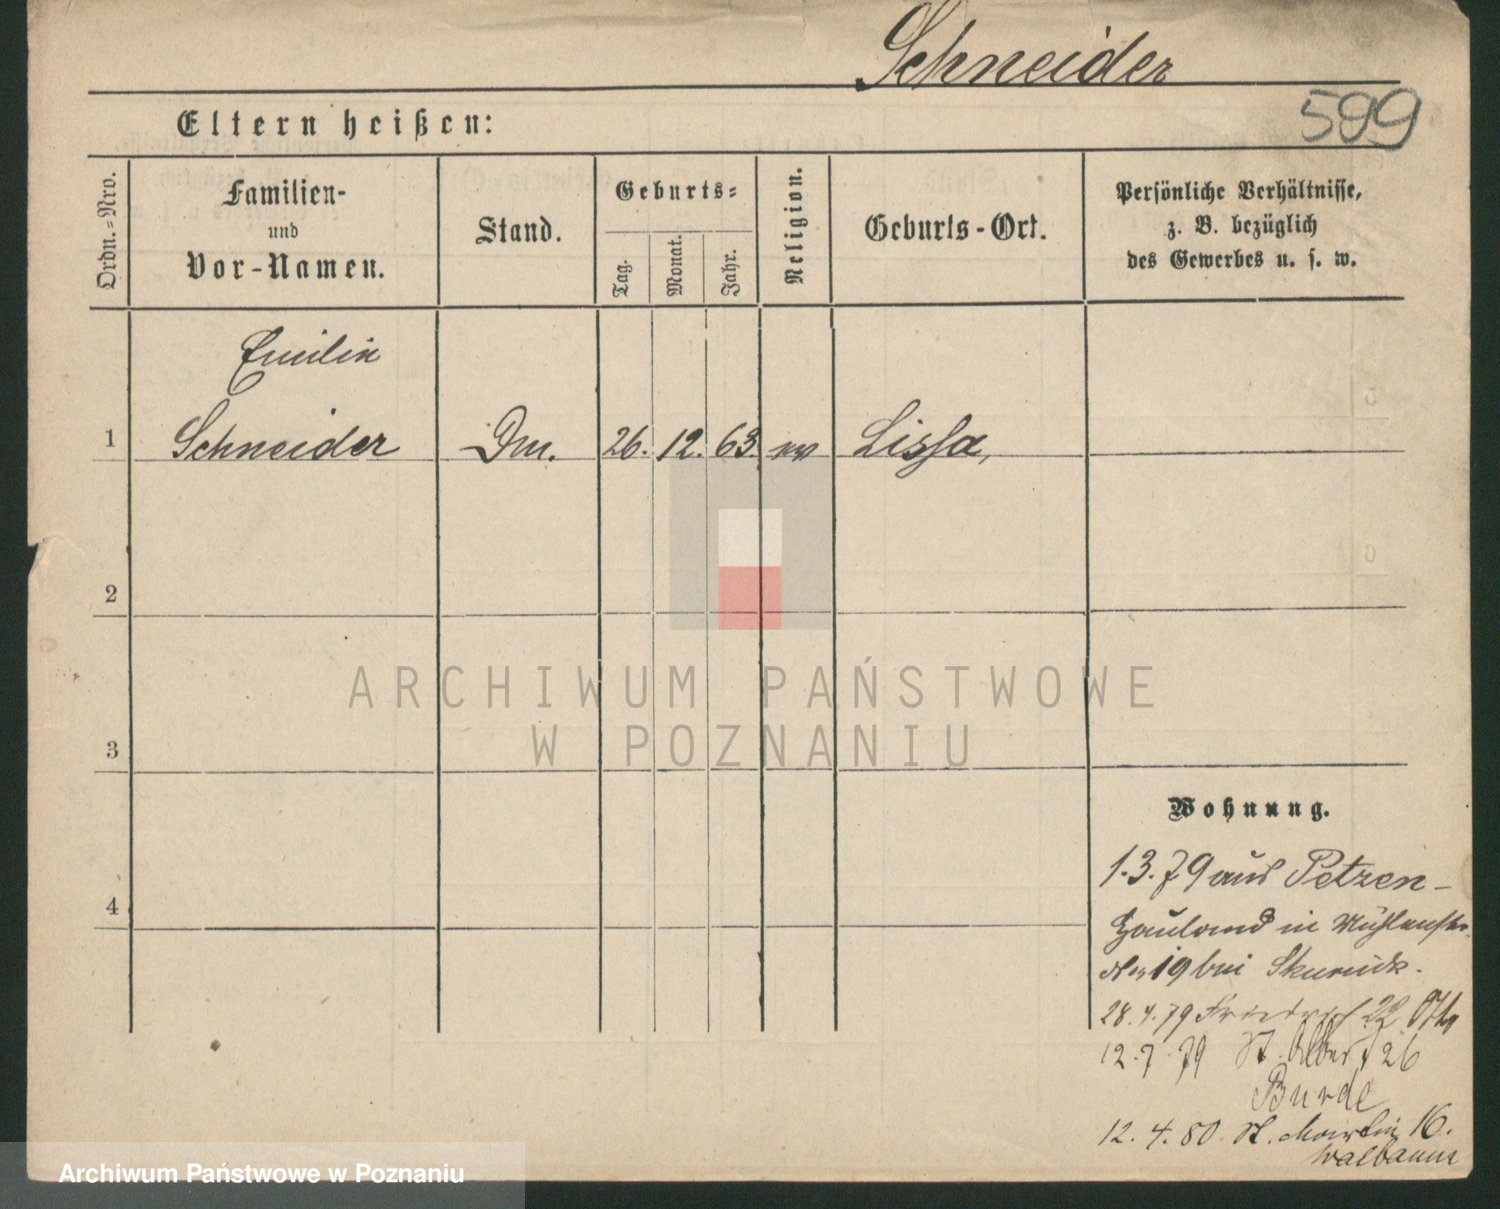 Schneider
599
Eltern heißen:
Ordn.-Nro.
Familien-
und
Vor-Namen.
Stand.
Geburts-
Tag.
Monat.
Jahr.
Religion.
Geburts-Ort.
Persönliche Verhältnisse,
z. B. bezüglich
des Gewerbes u. s. w.
Emilie
1 Schneider Dm. 26. 12. 63. ev Lissa,
2
3
4
ARCHIWUM PAŃSTWOWE
W POZNANIU
Wohnung.
1.3.79 aus Petzen-
Hauland in Mühlenstr.
No 19 bei
28.4.79 22
12.7.79 St. Adalbert 26
Burde
12.4.80. St. Martin 16.
Walbaum
Archiwum Państwowe w Poznaniu